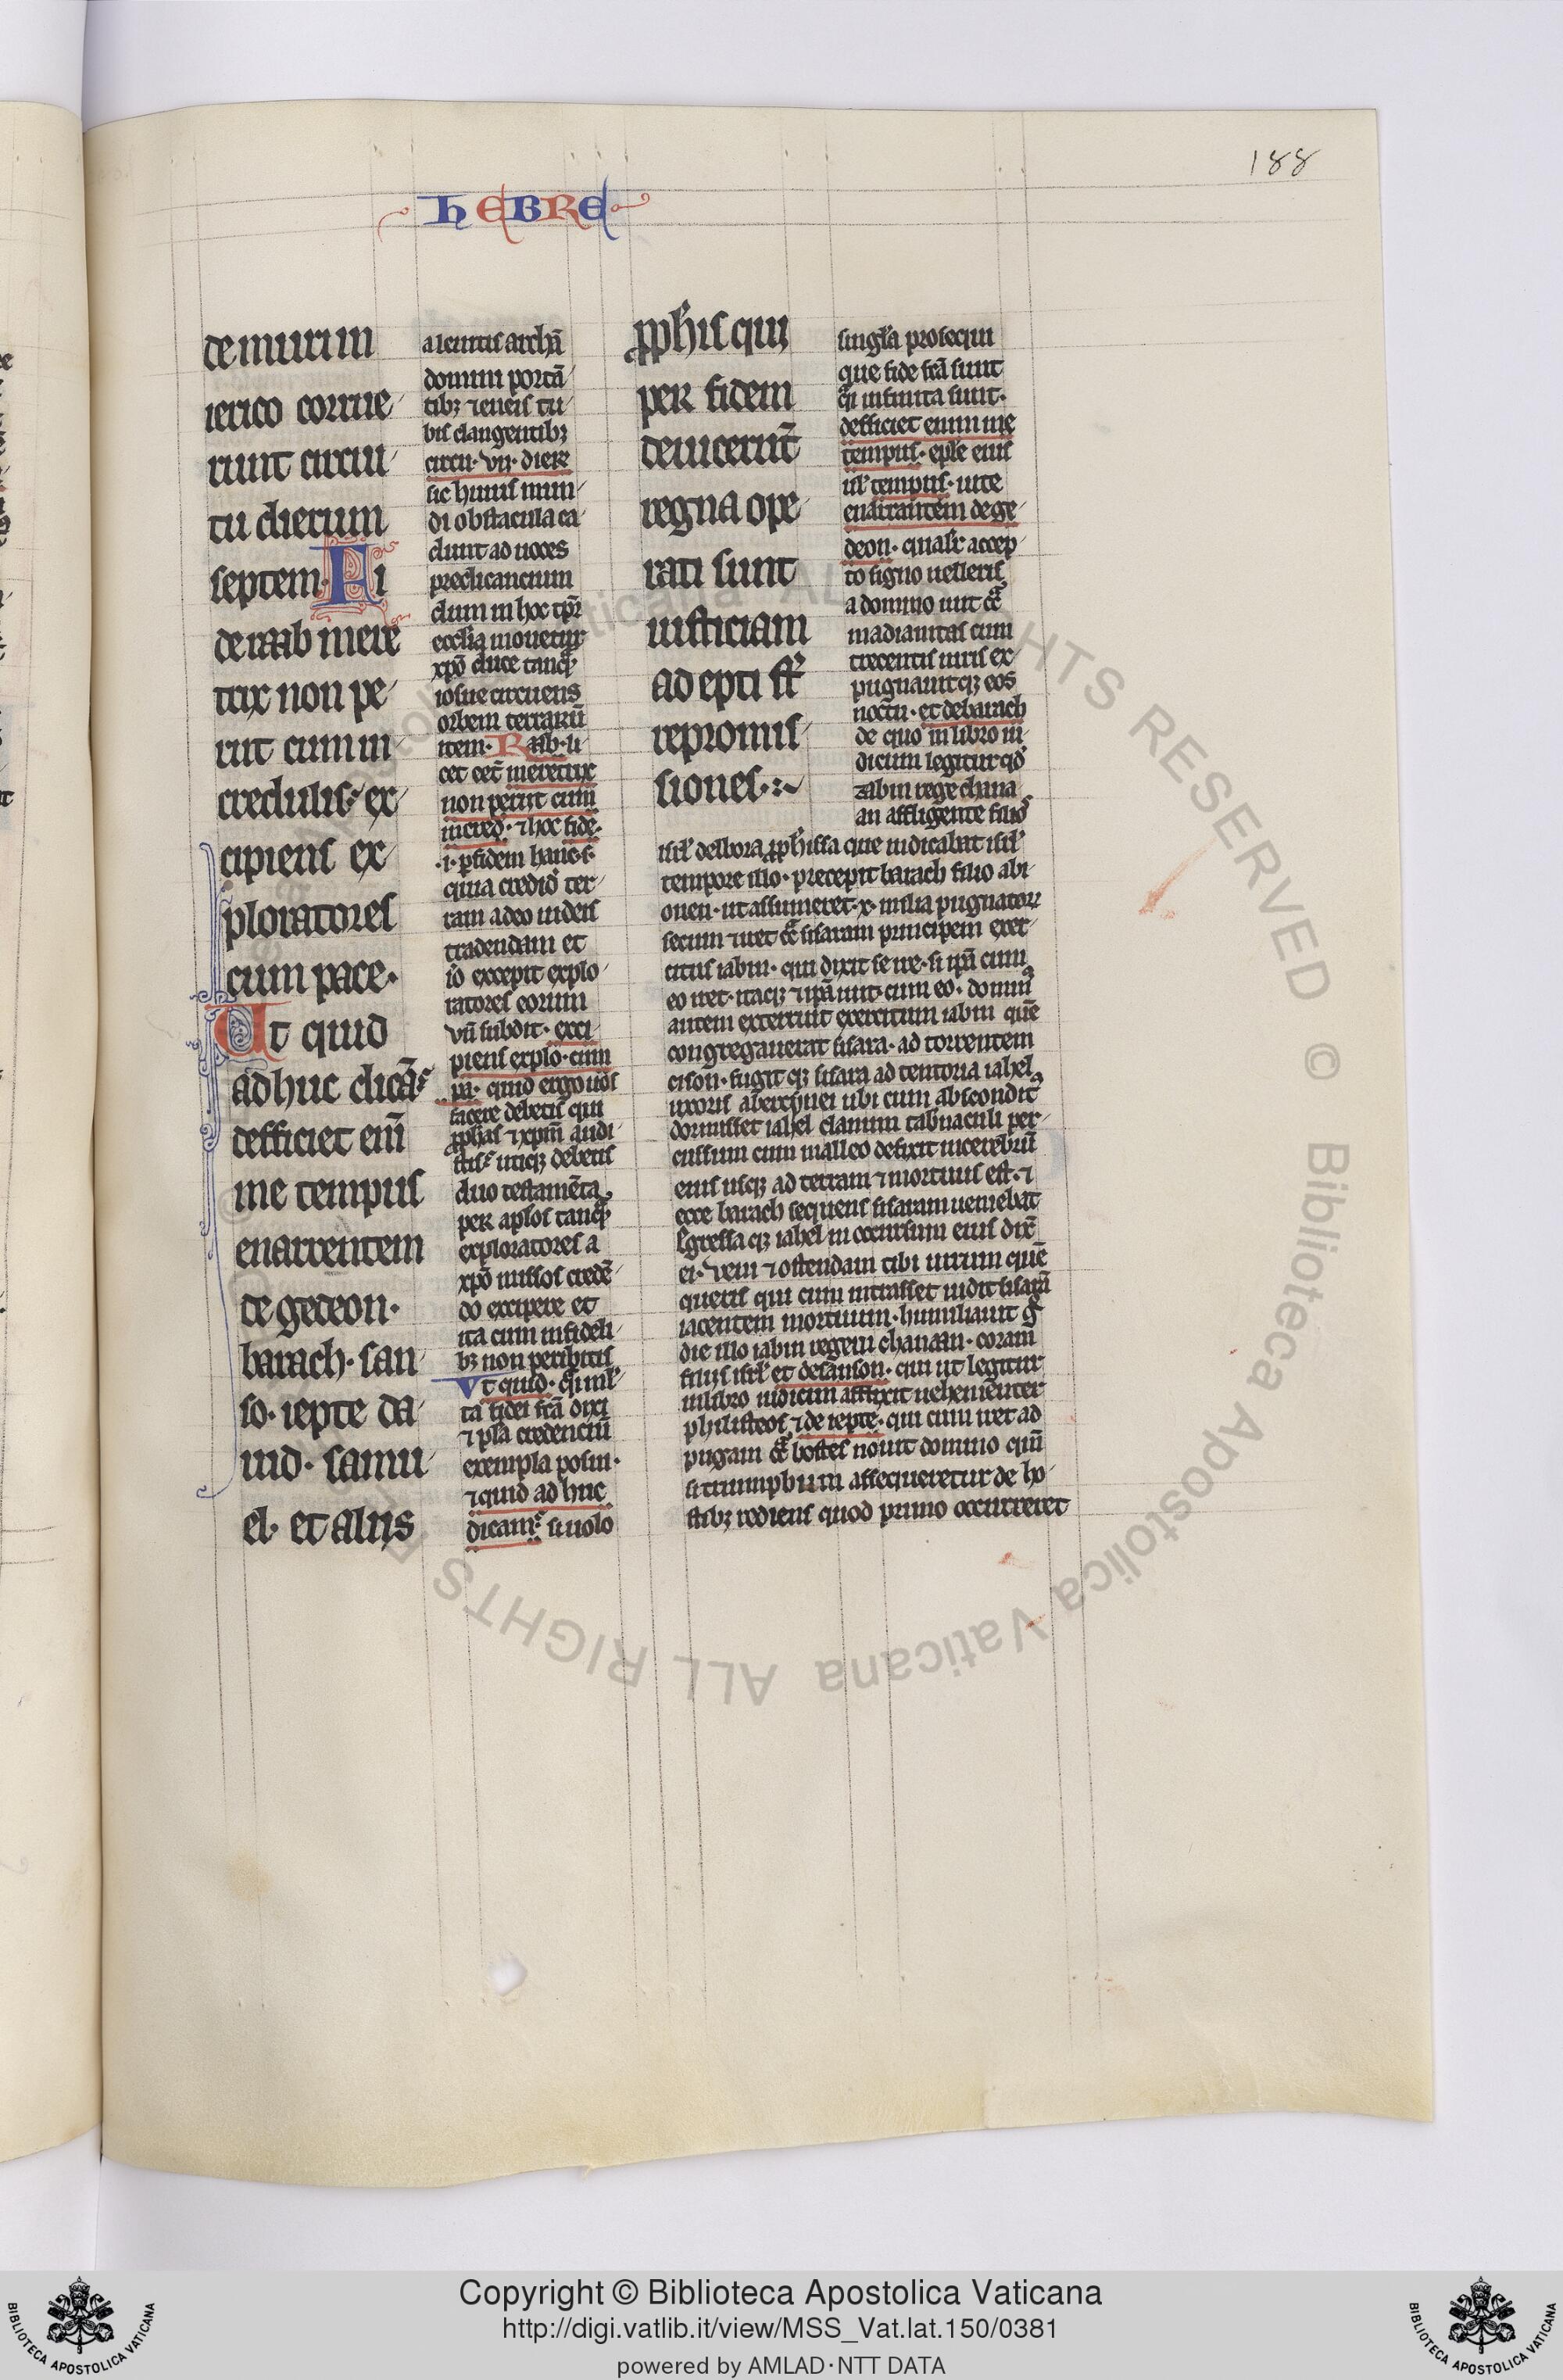 188
HEBRE
de muri in
ierico corrue
runt circui
tu dierum
septem. Fi
de raab mere
trix non pe
riit cum in
credulis. ex
cipiens ex
ploratores
cum pace.
Et quid
adhuc dicã
defficiet eni̅
me tempus
enarrentem
de gedeon.
barach. san
so. iepte da
uid. samu
el. et aliis
a leuitis archã
domini portã
tibꝫ ⁊ eneis tu
bis clangentibꝫ
circu. vii. dieꝝ
sic huius mun
di obstacula ca
dunt ad uoces
predicancium
dum in hoc tp̅r
ecclia mouetur
xp̅o duce tanqͣ
iosue circuens
orbem terrarũ
item. Raab. li
cet eet̅ meretrix
non periit cum
incred. ⁊ hoc fide.
.i. ꝑ fidem hanc. s.
quia credidͭ ter
ram a deo iudeis
tradendam et
io̅ excepit explo
ratores eorum
vn̅ subdit. exci
piens explo. cum
pa. quid ergo uos
facere debetis qui
ꝓphas ⁊ xpm̅ audi
stis utiqꝫ debetis
duo testamẽta
per aplos tanqͣ
exploratores a
xp̅o missos credẽ
do excipere et
ita cum infideli
bꝫ non peribitis
Et quid. q̅ mul
ta fidei fcã dixi
⁊ pl̅a credenciũ
exempla posui.
⁊ quid ad huc
dicam. si uolo
ꝓphis qui
per fidem
deuicerũt
regna ope
rati sunt
iusticiam
adepti st̅
repromis
siones.
singl̅a prosequi
que fide fcã sunt
q̅ infinita sunt.
defficiet enim me
tempus. epl̅e eius
ul̅ tempus. uite
enarrantem de ge
deon. qualr̅ accep
to signo uelleris
a domino iuit cͦtͣ
madianitas cum
trecentis uiris ex
pugnauitqꝫ eos
noctu. et de barach
de quo in libro iu
dicum legitur qd̅
iabin rege chana
an affligente filioˢ
isrl̅ delbora ꝓphissa que iudicabat isrl̅
tempore illo. precepit barach filio abi
onen. ut assumeret. x. milia pugnatoꝝ
secum ⁊ iret cͦtͣ sisaram principem exer
citus iabin. qui dixit se ire. si ip̅a cum
eo iret. itaqꝫ ⁊ ip̅a iuit cum eo. dominˀ
autem exterruit exercitum iabin quẽ
congregauerat sisara. ad torrentem
cison. fugit qꝫ sisara ad tentoria iahel
uxoris aber cynei ubi cum abscondita
dormisset iahel clauum tabnaculi per
cussum cum malleo defixit in cerebrũ
eius usqꝫ ad terram ⁊ mortuus est. ⁊
ecce barach sequens sisaram ueniebat
egressa qꝫ iahel in occursum eius dix̅
ei. veni ⁊ ostendam tibi uirum quẽ
queris qui cum intrasset uidit sisarã
iacentem mortuum. humiliauit gͦ
die illo iabin regem chanaan. coram
filiis isrl̅ et de sanson. qui ut legitur
in libro iudicum afflixit uehementer
philisteos ⁊ de iepte. qui cum iret ad
pugam cͦtͣ hostes uouit domino qui̅
si triumphum assequeretur de ho
stibꝫ rediens quod primo occurreret
Copyright © Biblioteca Apostolica Vaticana
http://digi.vatlib.it/view/MSS_Vat.lat.150/0381
powered by AMLAD·NTT DATA
BIBLIOTECA APOSTOLICA VATICANA
BIBLIOTECA APOSTOLICA VATICANA